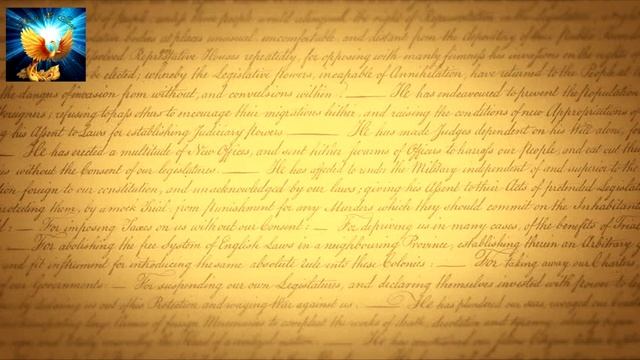 people would relinquish the right of Repres
bodies at places unusual, uncomfortable, and distant from the depository of their Public Reco
dissolved Representative Houses repeatedly, for opposing with manly firmness his invasions on the rights of
be elected; whereby the Legislative powers, incapable of Annihilation, have returned to the People at
the dangers of invasion from without, and convulsions within. — He has endeavoured to prevent the population
Foreigners; refusing to pass others to encourage their migrations hither, and raising the conditions of new Appropriations o
g his Assent to Laws for establishing Judiciary powers. — He has made Judges dependent on his Will alone, for
— He has erected a multitude of New Offices, and sent hither swarms of Officers to harass our People, and eat out th
us without the Consent of our legislatures. — He has affected to render the Military independent of and superior to the
tion foreign to our constitution, and unacknowledged by our laws; giving his Assent to their Acts of pretended Legislat
protecting them, by a mock Trial, from punishment for any Murders which they should commit on the Inhabitants
: — For imposing Taxes on us without our Consent: — For depriving us in many cases, of the benefits of Trial
— For abolishing the free System of English Laws in a neighbouring Province, establishing therein an Arbitrary
and fit instrument for introducing the same absolute rule into these Colonies: — For taking away our Charters
of our Governments: — For suspending our own Legislatures, and declaring themselves invested with power to le
by declaring us out of his Protection and waging War against us. — He has plundered our seas, ravaged our Coas
large Armies of foreign Mercenaries to compleat the works of death, desolation and tyranny